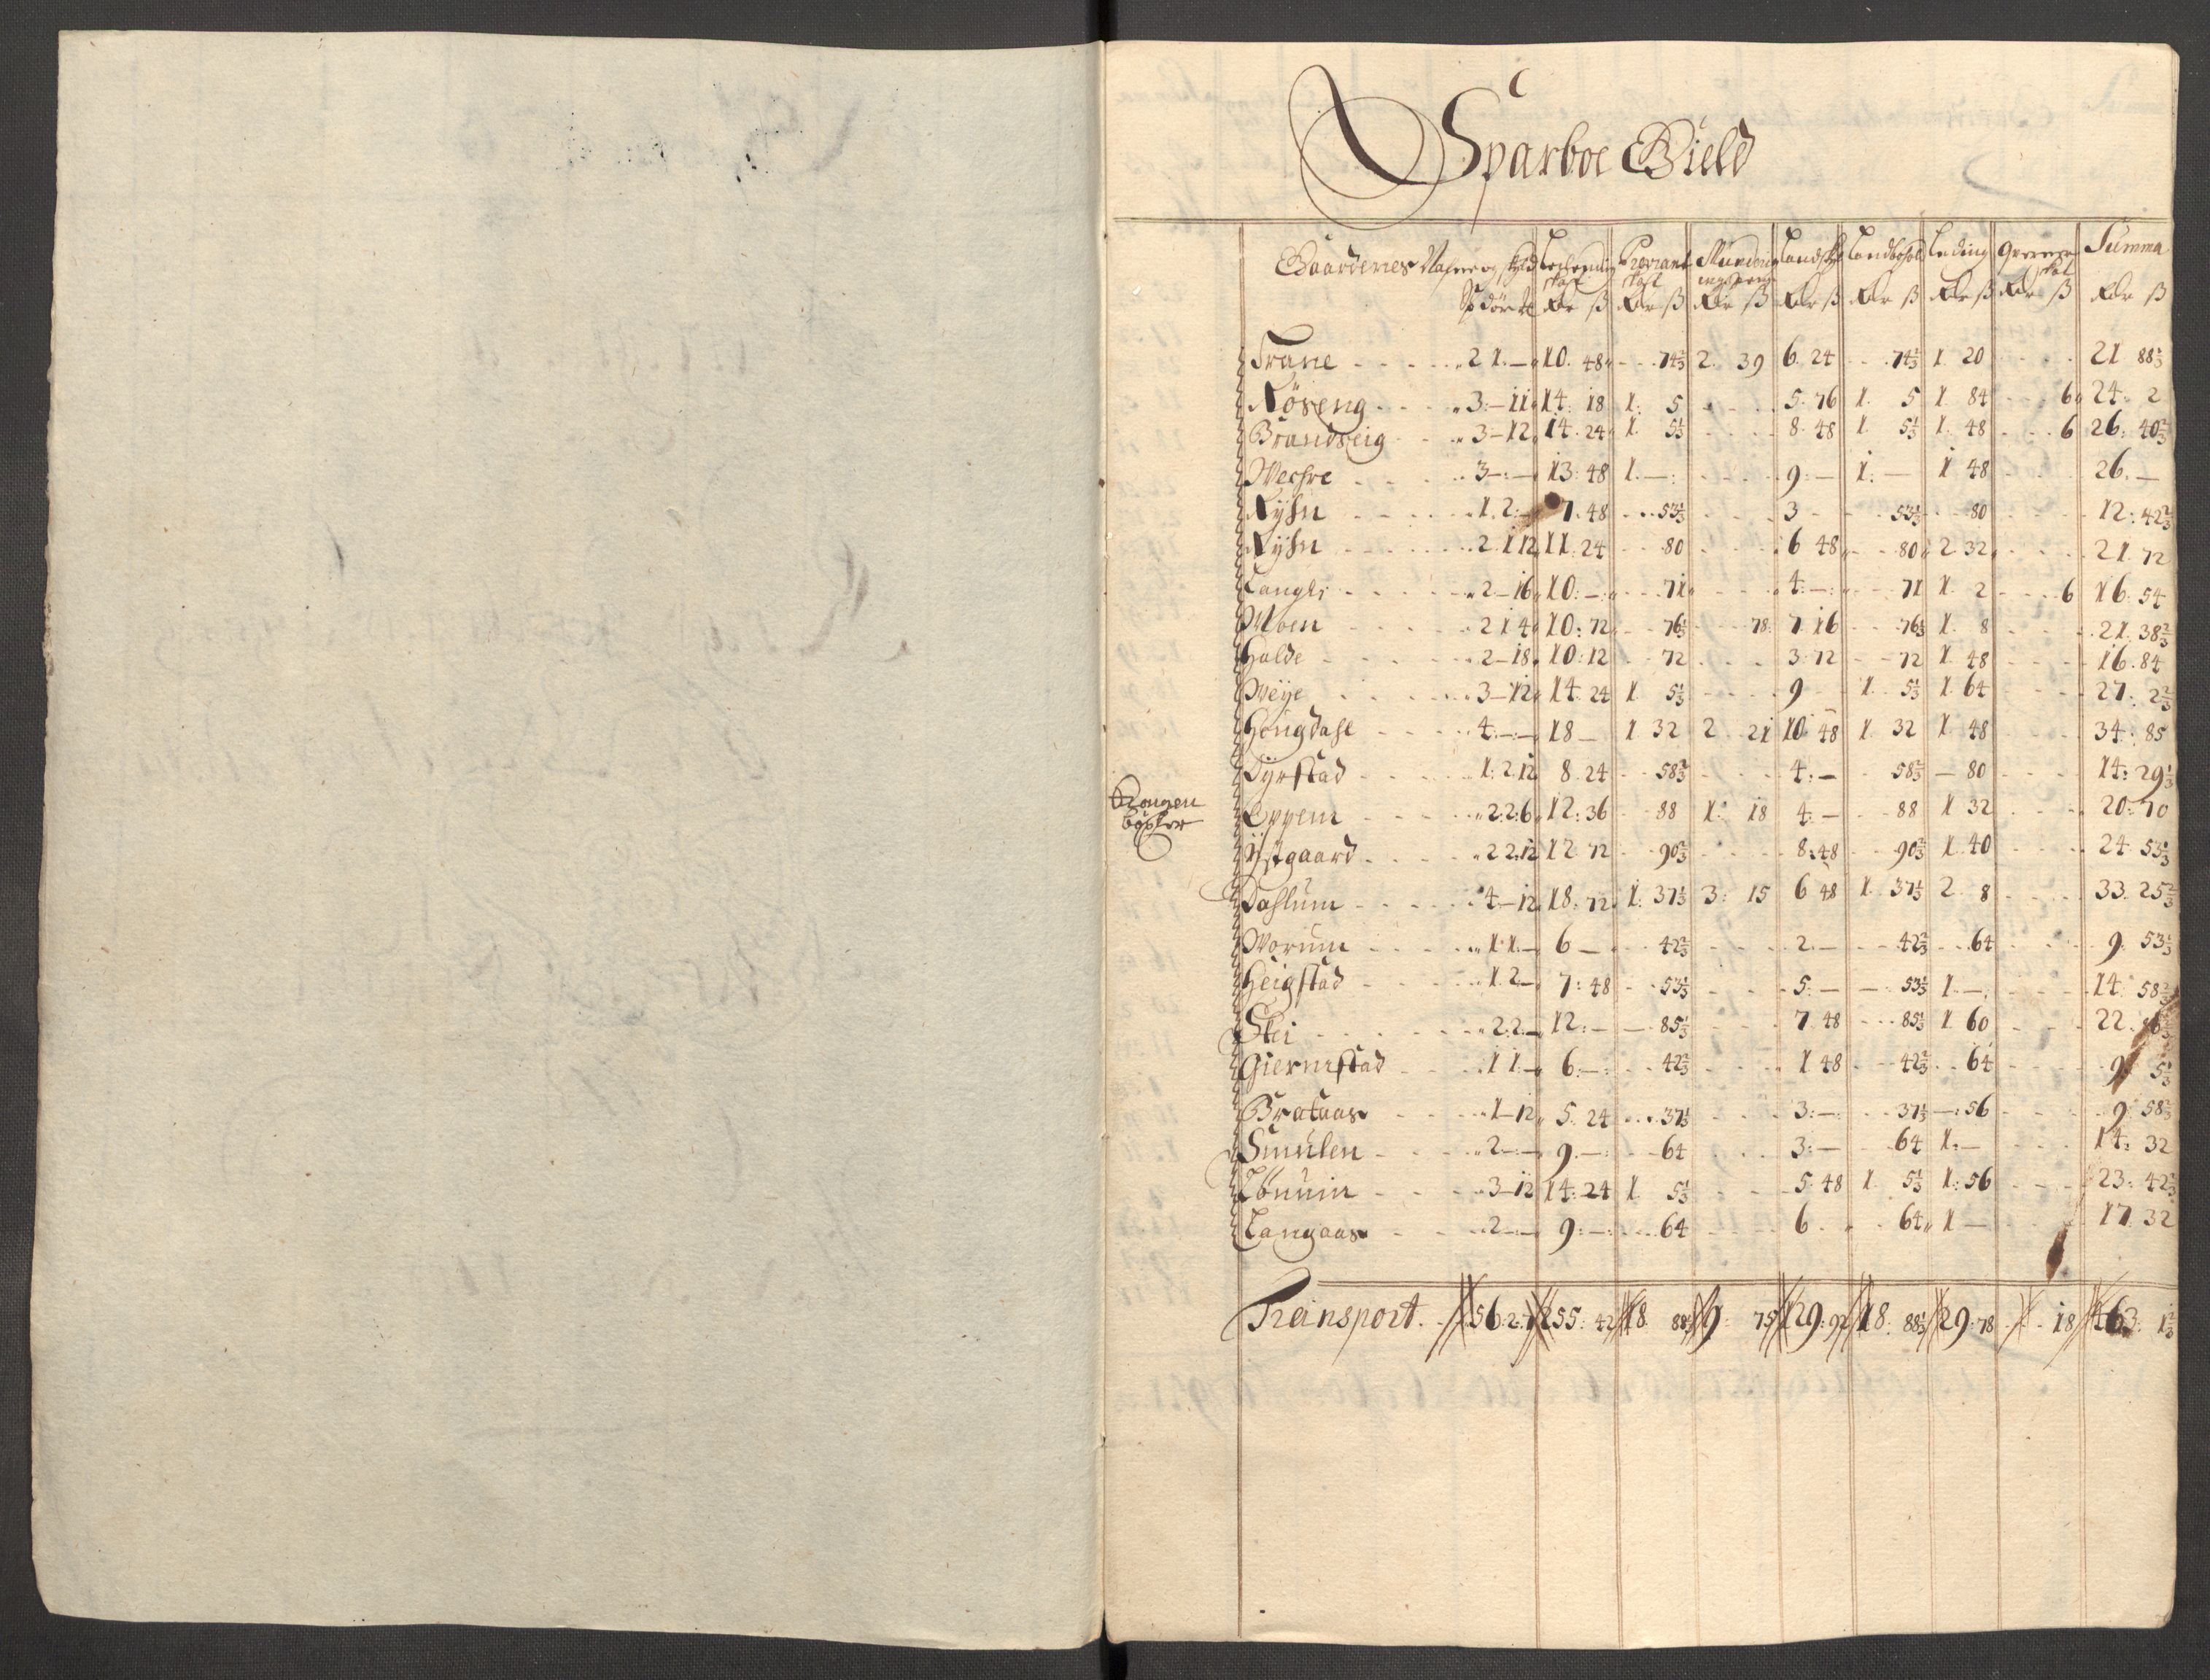 Sparboe Gield
Gaardenes Nafne og skyld Leilending skat Proviant skat Munderings penge Landskyld Landbohold Leding Qverne skat Summa
Sp. dör # Rdr ß Rdr ß Rdr ß Rdr ß Rdr ß Rdr ß Rdr ß Rdr ß
Trane 2 1 — 10. 48 74⅔ 2. 39 6. 24 74⅔ 1 20 21 88⅓
Röseng 3 — 11 14. 18 1. 5 5. 76 1. 5 1. 84 6 24. 2
Brandseig 3 — 12 14. 24 1. 5⅓ 8. 48 1. 5⅓ 1. 48 6 26. 40⅔
Wechre 3 — 13. 48 1. — 9. — 1. — 1 48 26. —
Rysen 1. 2. — 7. 48 53⅓ 3 53⅓ 80 12. 42⅔
Rysen 2. 1 12 11. 24 80 6 48 80 2 32 21. 72
Langli 2 — 16 10. — 71 4. — 71 1. 2 6 16. 54
Moen 2 1 4 10. 72 76⅓ 78 7. 16 76⅓ 1. 8 21. 38⅔
Halde 2 — 18 10. 12 72 3. 72 72 1. 48 16. 84
Weye 3 — 12 14. 24 1. 5⅓ 9 1. 5⅓ 1. 64 27. 2⅔
Hongdahl 4. — 18 — 1 32 2 21 10. 48 1. 32 1. 48 34. 85
Dyrstad 1. 2. 12 8. 24 58⅔ 4. — 58⅔ — 80 14. 29⅓
Krongen böxler Oppem 2. 2. 6 12. 36 88 1. 18 4. — 88 1 32 20. 70
Ystgaard 2 2. 12 12. 72 90⅔ 8. 48 90⅔ 1. 40 24. 53⅓
Dahlum 4 — 12 18. 72 1. 37⅓ 3. 15 6 48 1. 37⅓ 2. 8 33. 25⅔
Worum 1. 1. — 6 — 42⅔ 2. — 42⅔ 64 9. 53⅓
Heigstad 1. 2 — 7. 48 53⅓ 5. — 53⅓ 1. — 14. 58⅔
Stei 2. 2. — 12. — 85⅓ 7. 48 85⅓ 1 60 22.
Giermstad 1 1. — 6. — 42⅔ 1 48 42⅔ 64 9. 5⅓
Brataas 1 — 12 5. 24 37⅓ 3. — 37⅓ — 56 9. 58⅔
Smulen 2 — 9. — 64 3. — 64 1. — 14. 32
Lönnin 3 — 12 14. 24 1. 5⅓ 5. 48 1. 5⅓ 1. 56 23. 42⅔
Langaas 2 — 9. — 64 6. 64 1 — 17. 32
Transport. 56. 2. 255. 42 18. 88⅓ 9. 75 129. 92 18. 88⅓ 29. 78 18 463. 1⅔